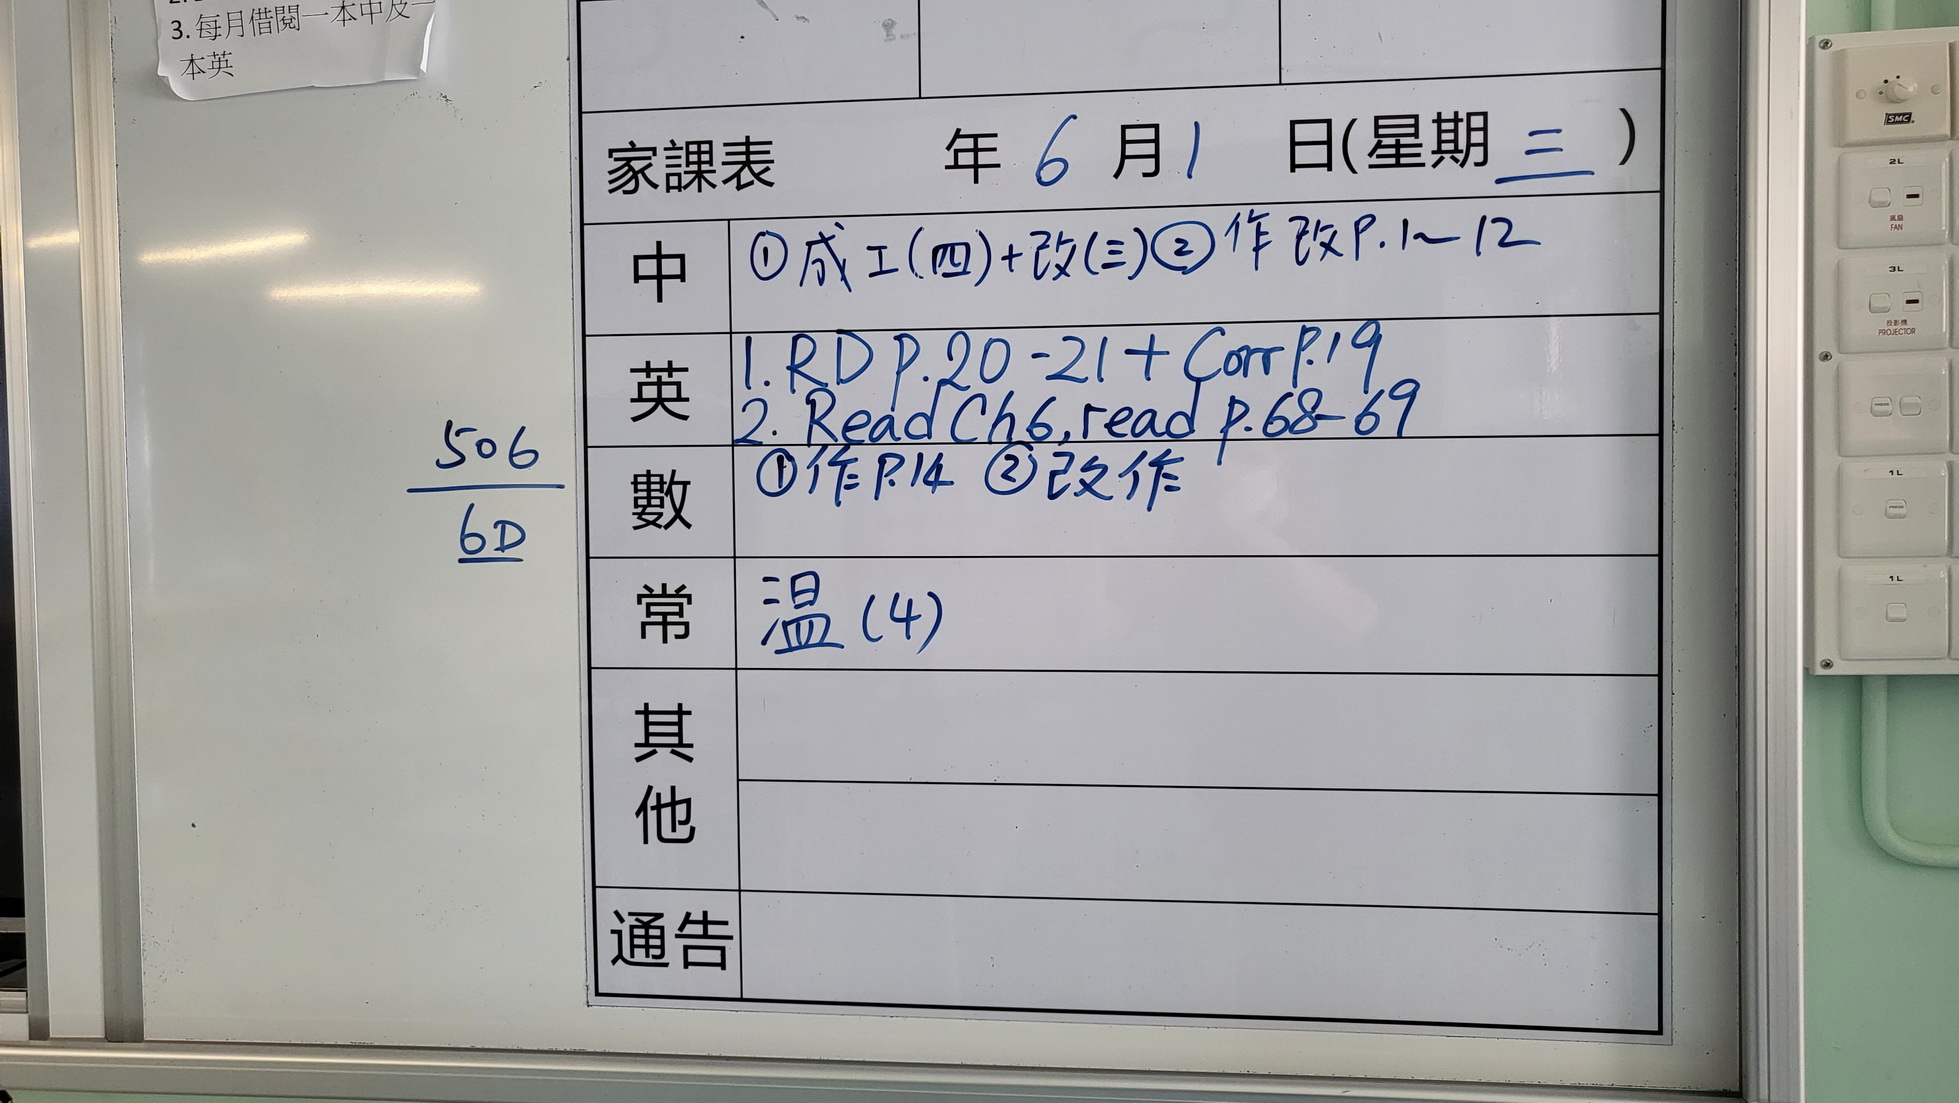 3. 每月借閱一本中及一
本英
家課表 年 6 月 1 日(星期 三 )
中 ①成工(四)+改(三)②作改P.1~12
英 1. RD p.20-21 + Corr P.19
2. Read Ch6, read p.68-69
數 ①作P.14 ②改作
常 温(4)
其他
通告
506
6D
SMC
2L
風扇
FAN
3L
投影機
PROJECTOR
1L
1L